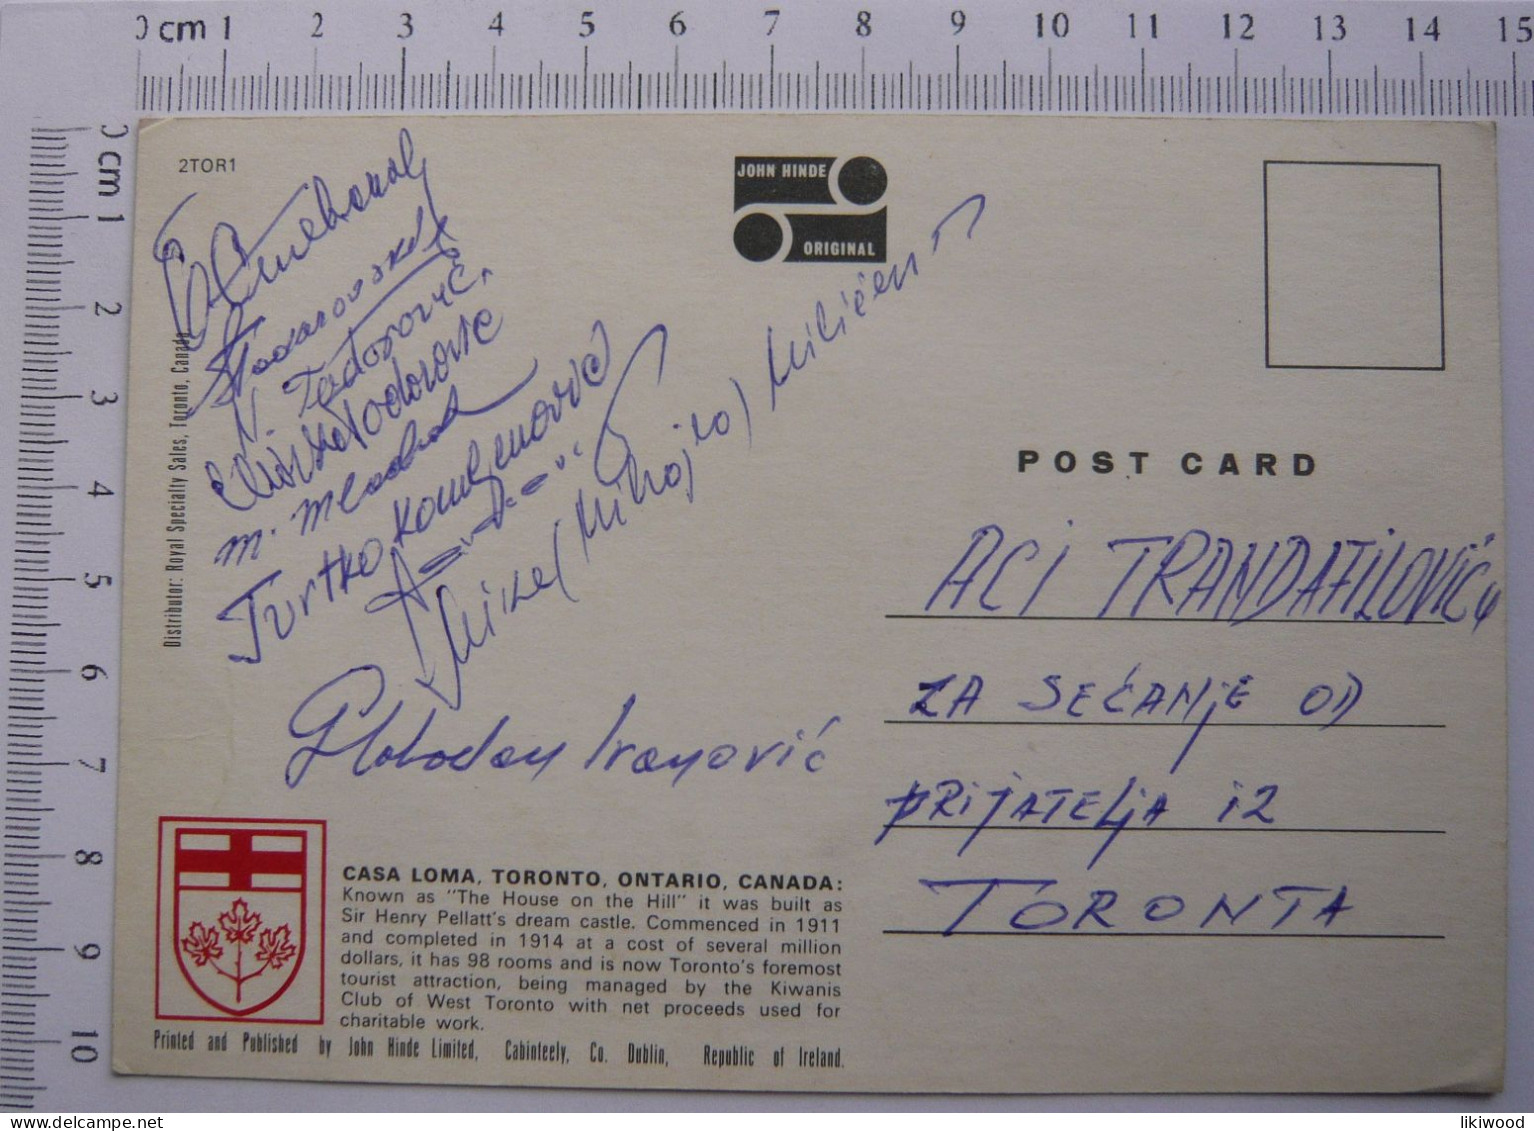 0 cm 1 2 3 4 5 6 7 8 9 10 11 12 13 14 15
0 cm 1 2 3 4 5 6 7 8 9 10
2TOR1
JOHN HINDE
ORIGINAL
Distributor: Royal Specialty Sales, Toronto, Canada
N. Todorović
Todorović
Tvrtko Komljenović
Mikel (Mihajlo) Milićen
Slobodan Ivanović
POST CARD
ACI TRANDAFILOVIĆu
ZA SEĆANJE OD
PRIJATELJA IZ
TORONTA
CASA LOMA, TORONTO, ONTARIO, CANADA:
Known as "The House on the Hill" it was built as
Sir Henry Pellatt's dream castle. Commenced in 1911
and completed in 1914 at a cost of several million
dollars, it has 98 rooms and is now Toronto's foremost
tourist attraction, being managed by the Kiwanis
Club of West Toronto with net proceeds used for
charitable work.
Printed and Published by John Hinde Limited, Cabinteely, Co. Dublin, Republic of Ireland.
likiwood